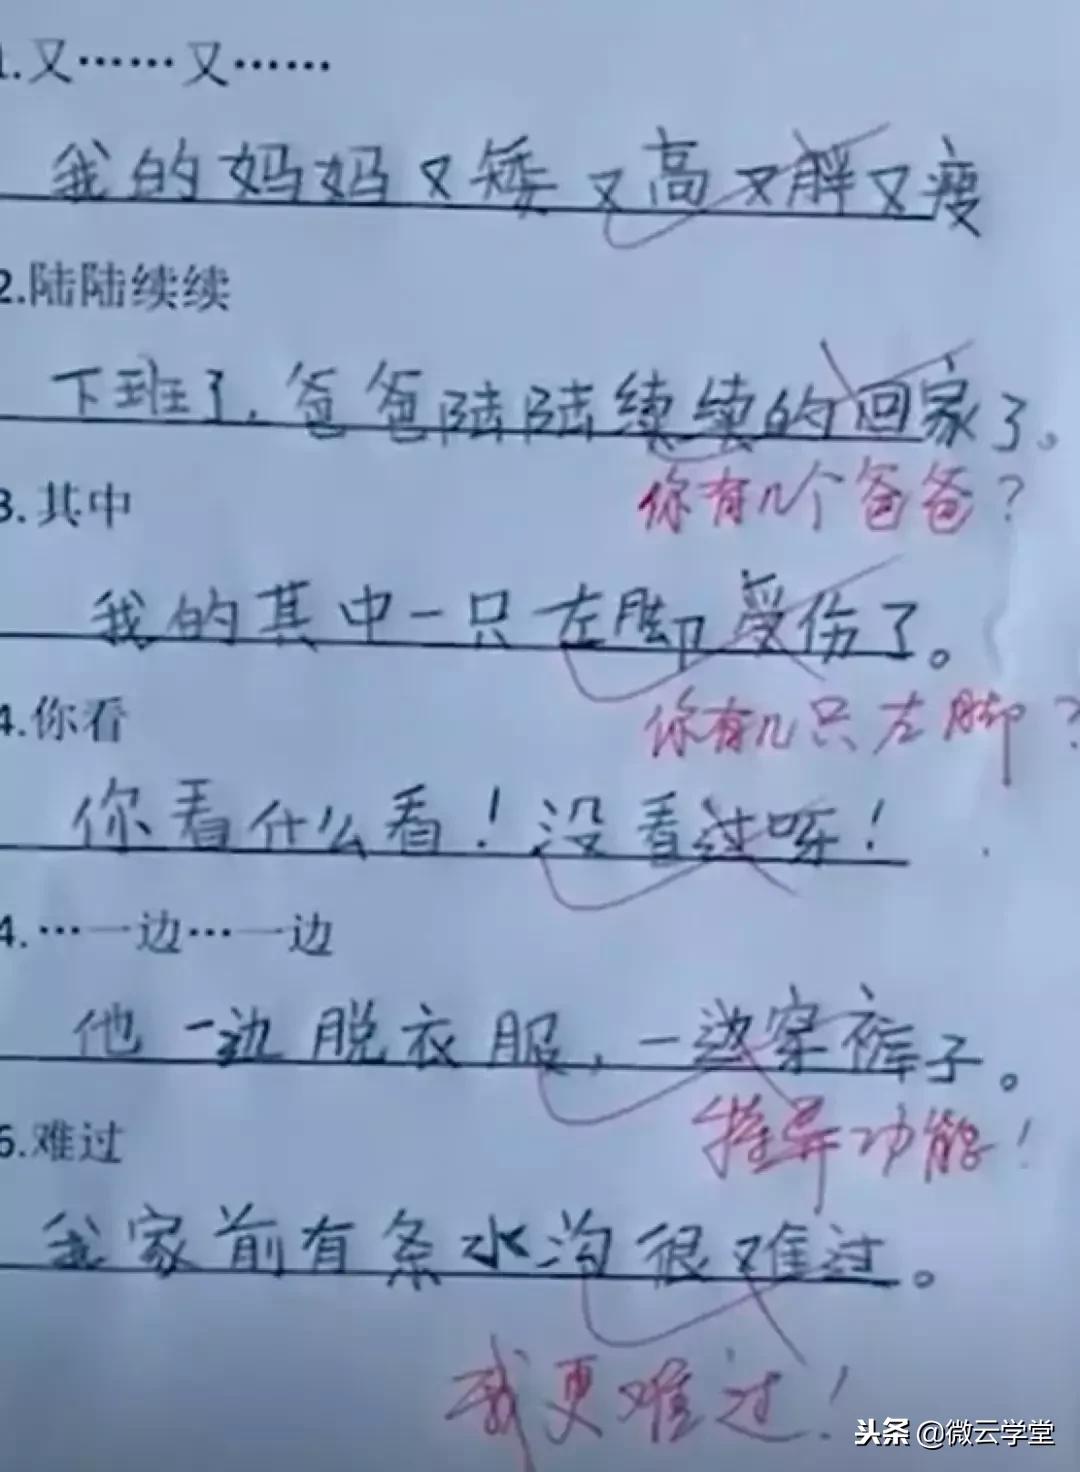 1.又……又……
我的妈妈又矮又高又胖又瘦
2.陆陆续续
下班了,爸爸陆陆续续的回家了。
你有几个爸爸?
3.其中
我的其中一只左脚受伤了。
你有几只左脚?
4.你看
你看什么看!没看过呀!
4.…一边…一边
他一边脱衣服,一边穿裤子。
特异功能!
6.难过
我家前有条水沟很难过。
我更难过!
头条@微云学堂